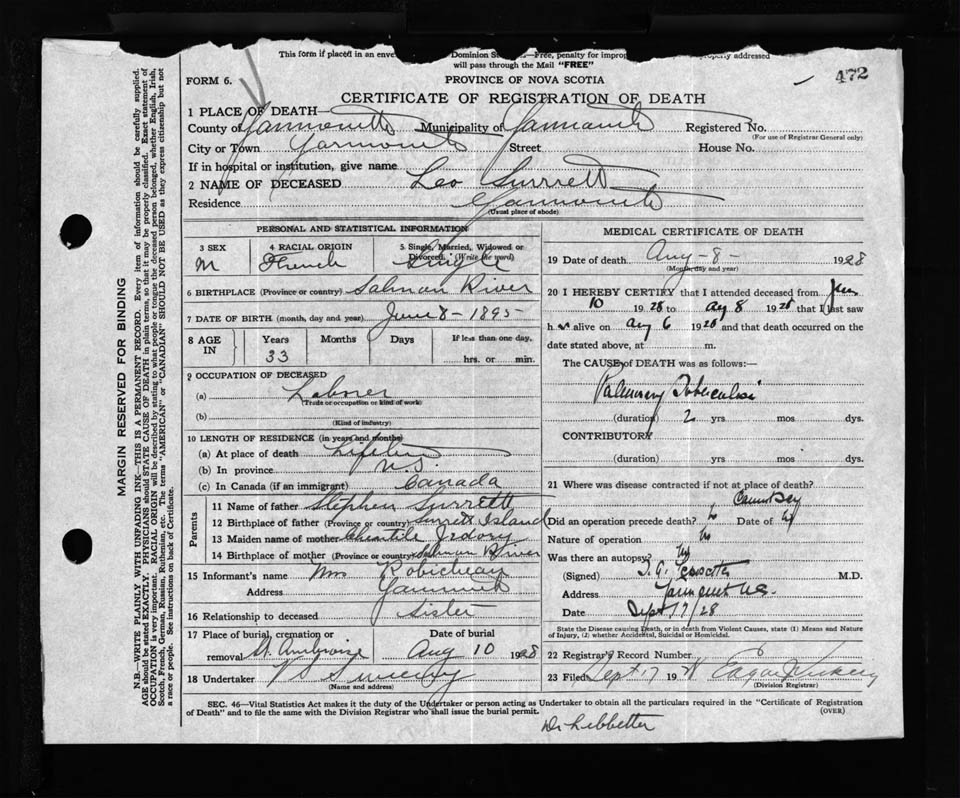 This form if placed in an enve Dominion Sta -Free, penalty for improp properly addressed
will pass through the Mail "FREE"
FORM 6. PROVINCE OF NOVA SCOTIA 472
CERTIFICATE OF REGISTRATION OF DEATH
1 PLACE OF DEATH
County of Yarmouth Municipality of Yarmouth Registered No.
(For use of Registrar General only)
City or Town Yarmouth Street House No.
If in hospital or institution, give name
2 NAME OF DECEASED Leo Surrett
Residence Yarmouth
(Usual place of abode)
PERSONAL AND STATISTICAL INFORMATION
3 SEX 4 RACIAL ORIGIN 5 Single, Married, Widowed or
Divorced. (Write the word)
M French Single
6 BIRTHPLACE (Province or country) Salmon River
7 DATE OF BIRTH (month, day and year) June 8 - 1895
8 AGE IN Years Months Days If less than one day,
33 hrs. or min.
9 OCCUPATION OF DECEASED
(a) Laborer
(Trade or occupation or kind of work)
(b)
(Kind of industry)
10 LENGTH OF RESIDENCE (in years and months)
(a) At place of death Lifetime
(b) In province N.S.
(c) In Canada (if an immigrant) Canada
Parents
11 Name of father Stephen Surrett
12 Birthplace of father (Province or country) Surrett Island
13 Maiden name of mother
14 Birthplace of mother (Province or country) Salmon River
15 Informant's name Mrs Robicheau
Address Yarmouth
16 Relationship to deceased Sister
17 Place of burial, cremation or Date of burial
removal St. Ambroise Aug 10 1928
18 Undertaker V S Sweeny
(Name and address)
MEDICAL CERTIFICATE OF DEATH
19 Date of death Aug - 8 - 1928
(Month, day and year)
20 I HEREBY CERTIFY that I attended deceased from
10 1928 to Aug 8 1928 that I last saw
h im alive on Aug 6 1928 and that death occurred on the
date stated above, at m.
The CAUSE of DEATH was as follows:
Pulmonary Tuberculosis
(duration) 2 yrs mos dys.
CONTRIBUTORY
(duration) yrs. mos. dys.
21 Where was disease contracted if not at place of death?
Did an operation precede death? Date of
Nature of operation No
Was there an autopsy?
(Signed) M.D.
Address Yarmouth N.S.
Date Sept 17/28
State the Disease causing Death, or in death from Violent Causes, state (1) Means and Nature
of Injury, (2) whether Accidental, Suicidal or Homicidal.
22 Registrar's Record Number
23 Filed Sept 17 1928
(Division Registrar)
SEC. 46—Vital Statistics Act makes it the duty of the Undertaker or person acting as Undertaker to obtain all the particulars required in the "Certificate of Registration
of Death" and to file the same with the Division Registrar who shall issue the burial permit. (OVER)
Dr Lebbetter
MARGIN RESERVED FOR BINDING
N.B.—WRITE PLAINLY WITH UNFADING INK—THIS IS A PERMANENT RECORD. Every item of information should be carefully supplied.
AGE should be stated EXACTLY. PHYSICIANS should STATE CAUSE OF DEATH in plain terms, so that it may be properly classified. Exact statement of
OCCUPATION is very important. RACIAL ORIGIN will be described by stating to what people or tongue the deceased person belonged, whether English, Irish,
Scotch, French, German, Russian, Ruthenian, etc. The terms "AMERICAN" or "CANADIAN" SHOULD NOT BE USED as they express citizenship but not
a race or people. See instructions on back of Certificate.